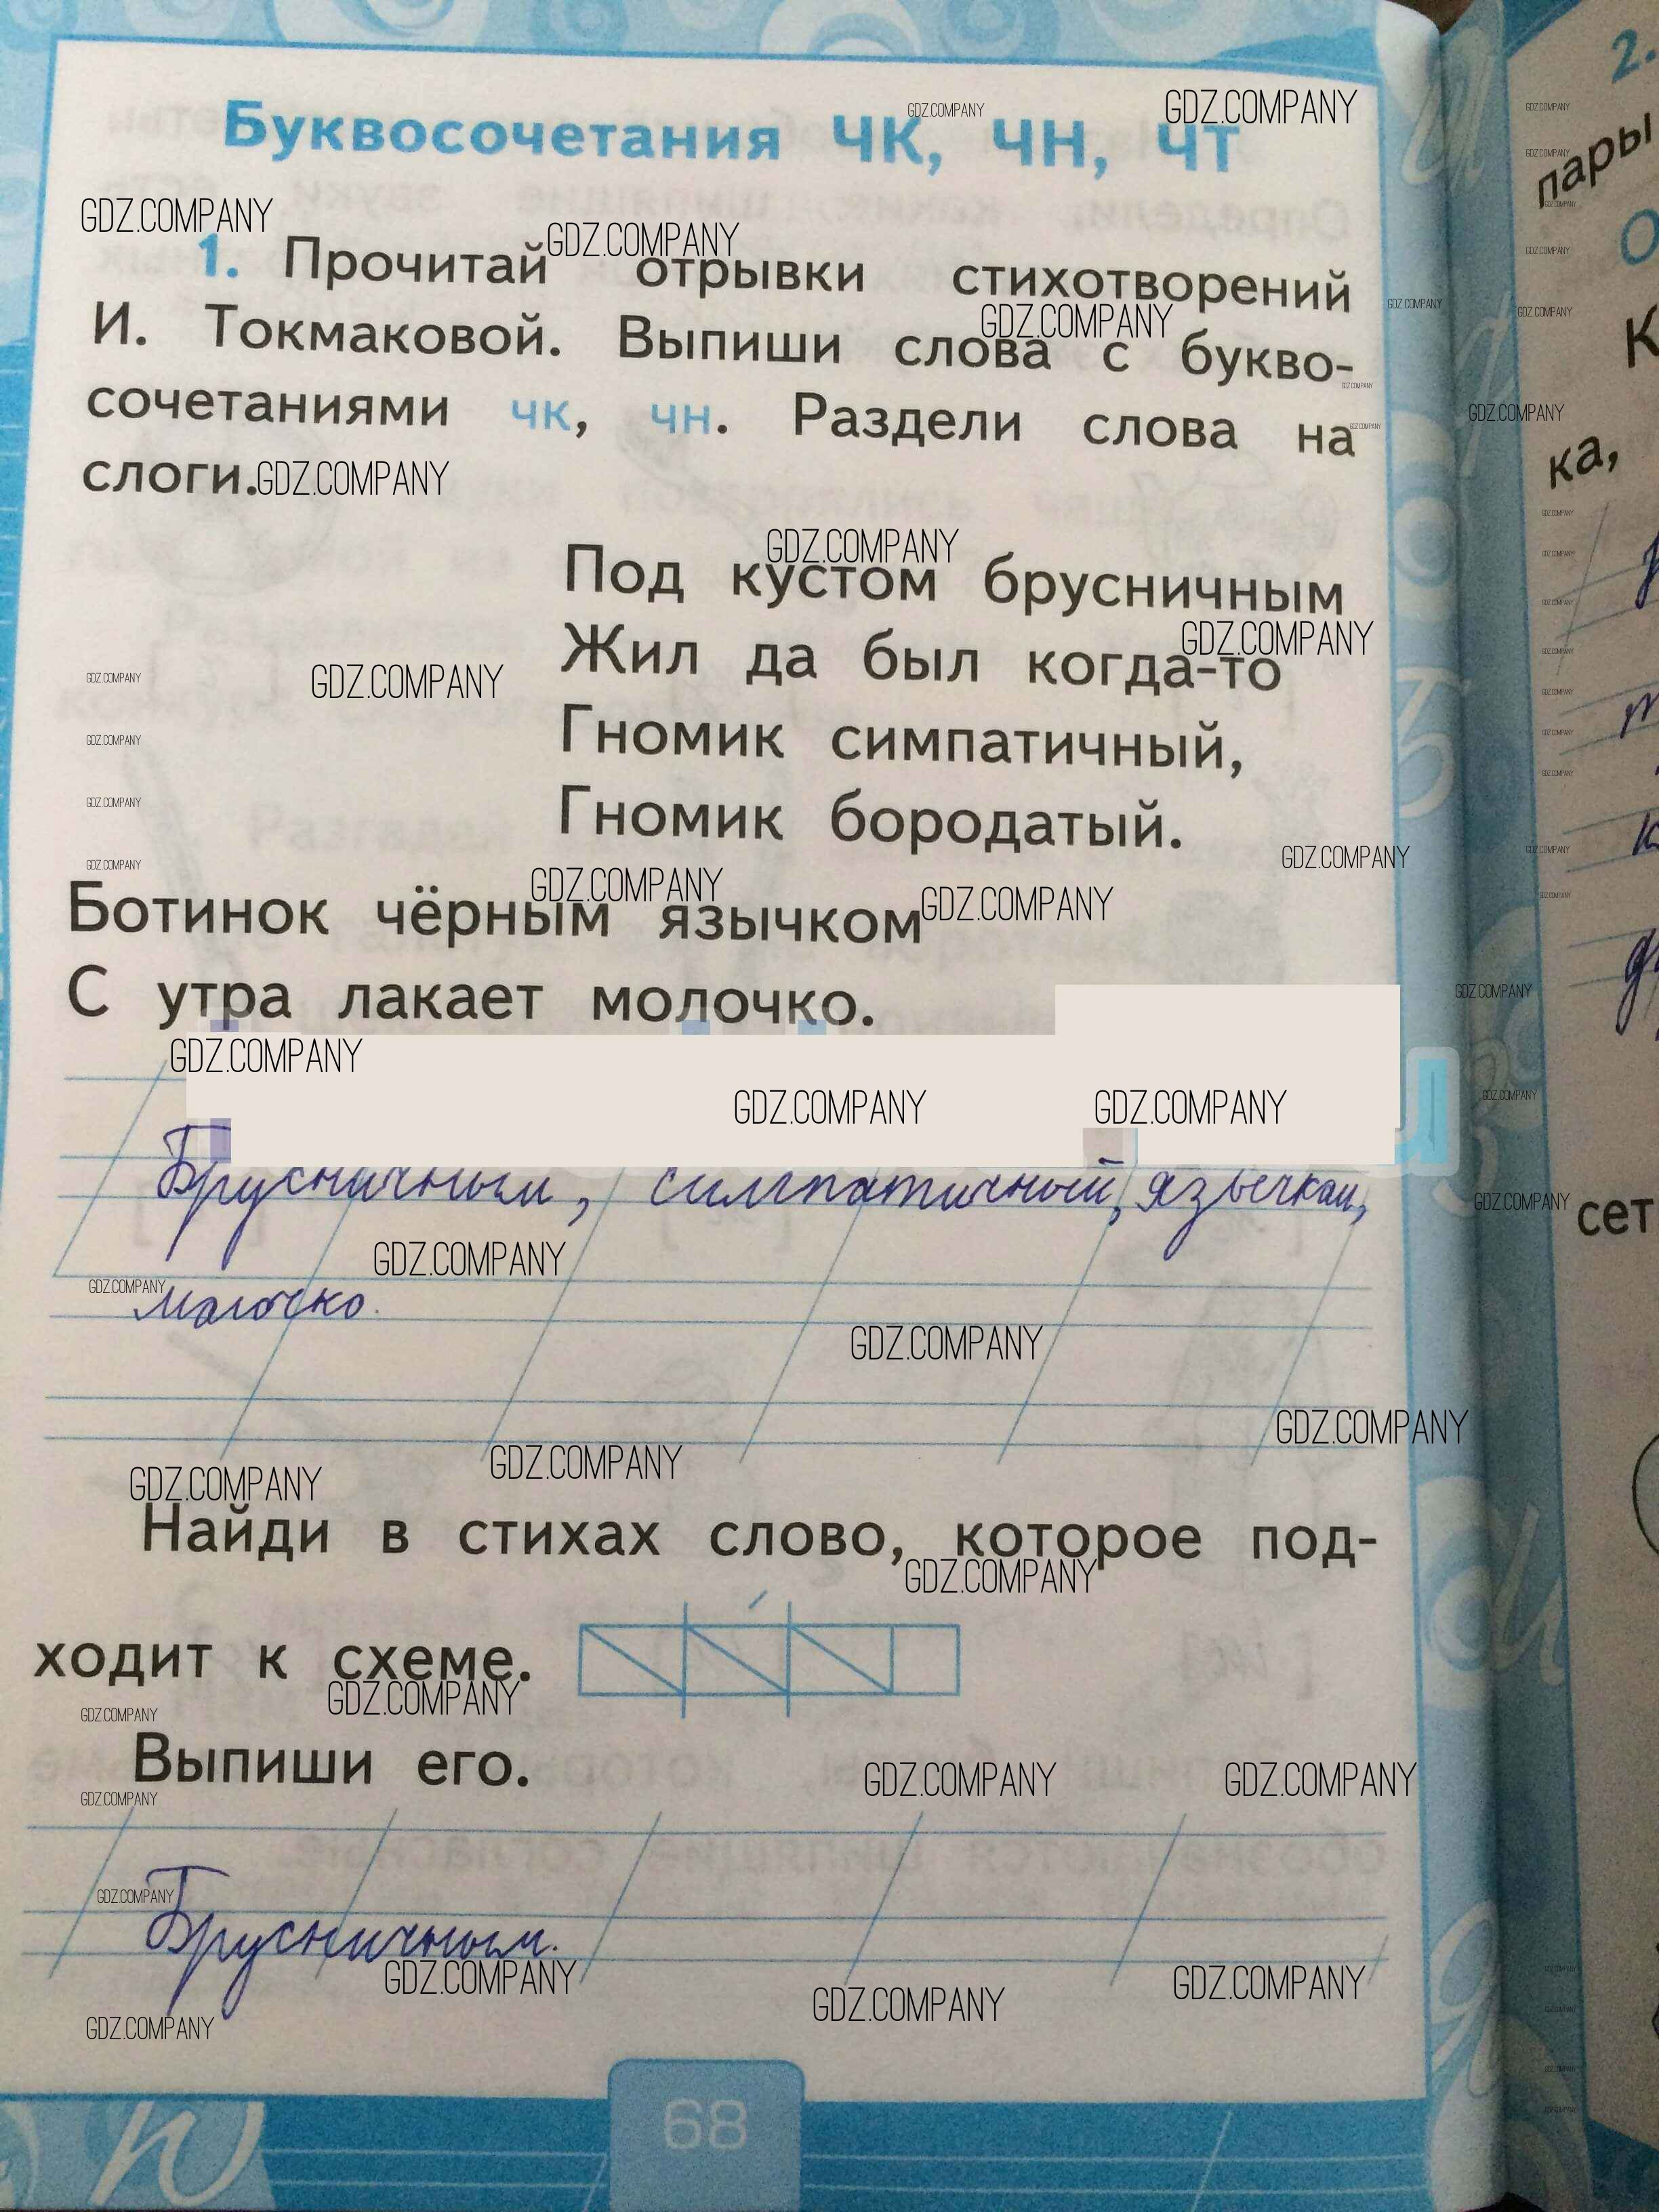 Буквосочетания ЧК, ЧН, ЧТ
1. Прочитай отрывки стихотворений
И. Токмаковой. Выпиши слова с букво-
сочетаниями чк, чн. Раздели слова на
слоги.
Под кустом брусничным
Жил да был когда-то
Гномик симпатичный,
Гномик бородатый.
Ботинок чёрным язычком
С утра лакает молочко.
Брусничным, симпатичный, язычком,
молочко.
Найди в стихах слово, которое под-
ходит к схеме.
Выпиши его.
Брусничным.
68
GDZ.COMPANY
2.
пары
ка,
сет